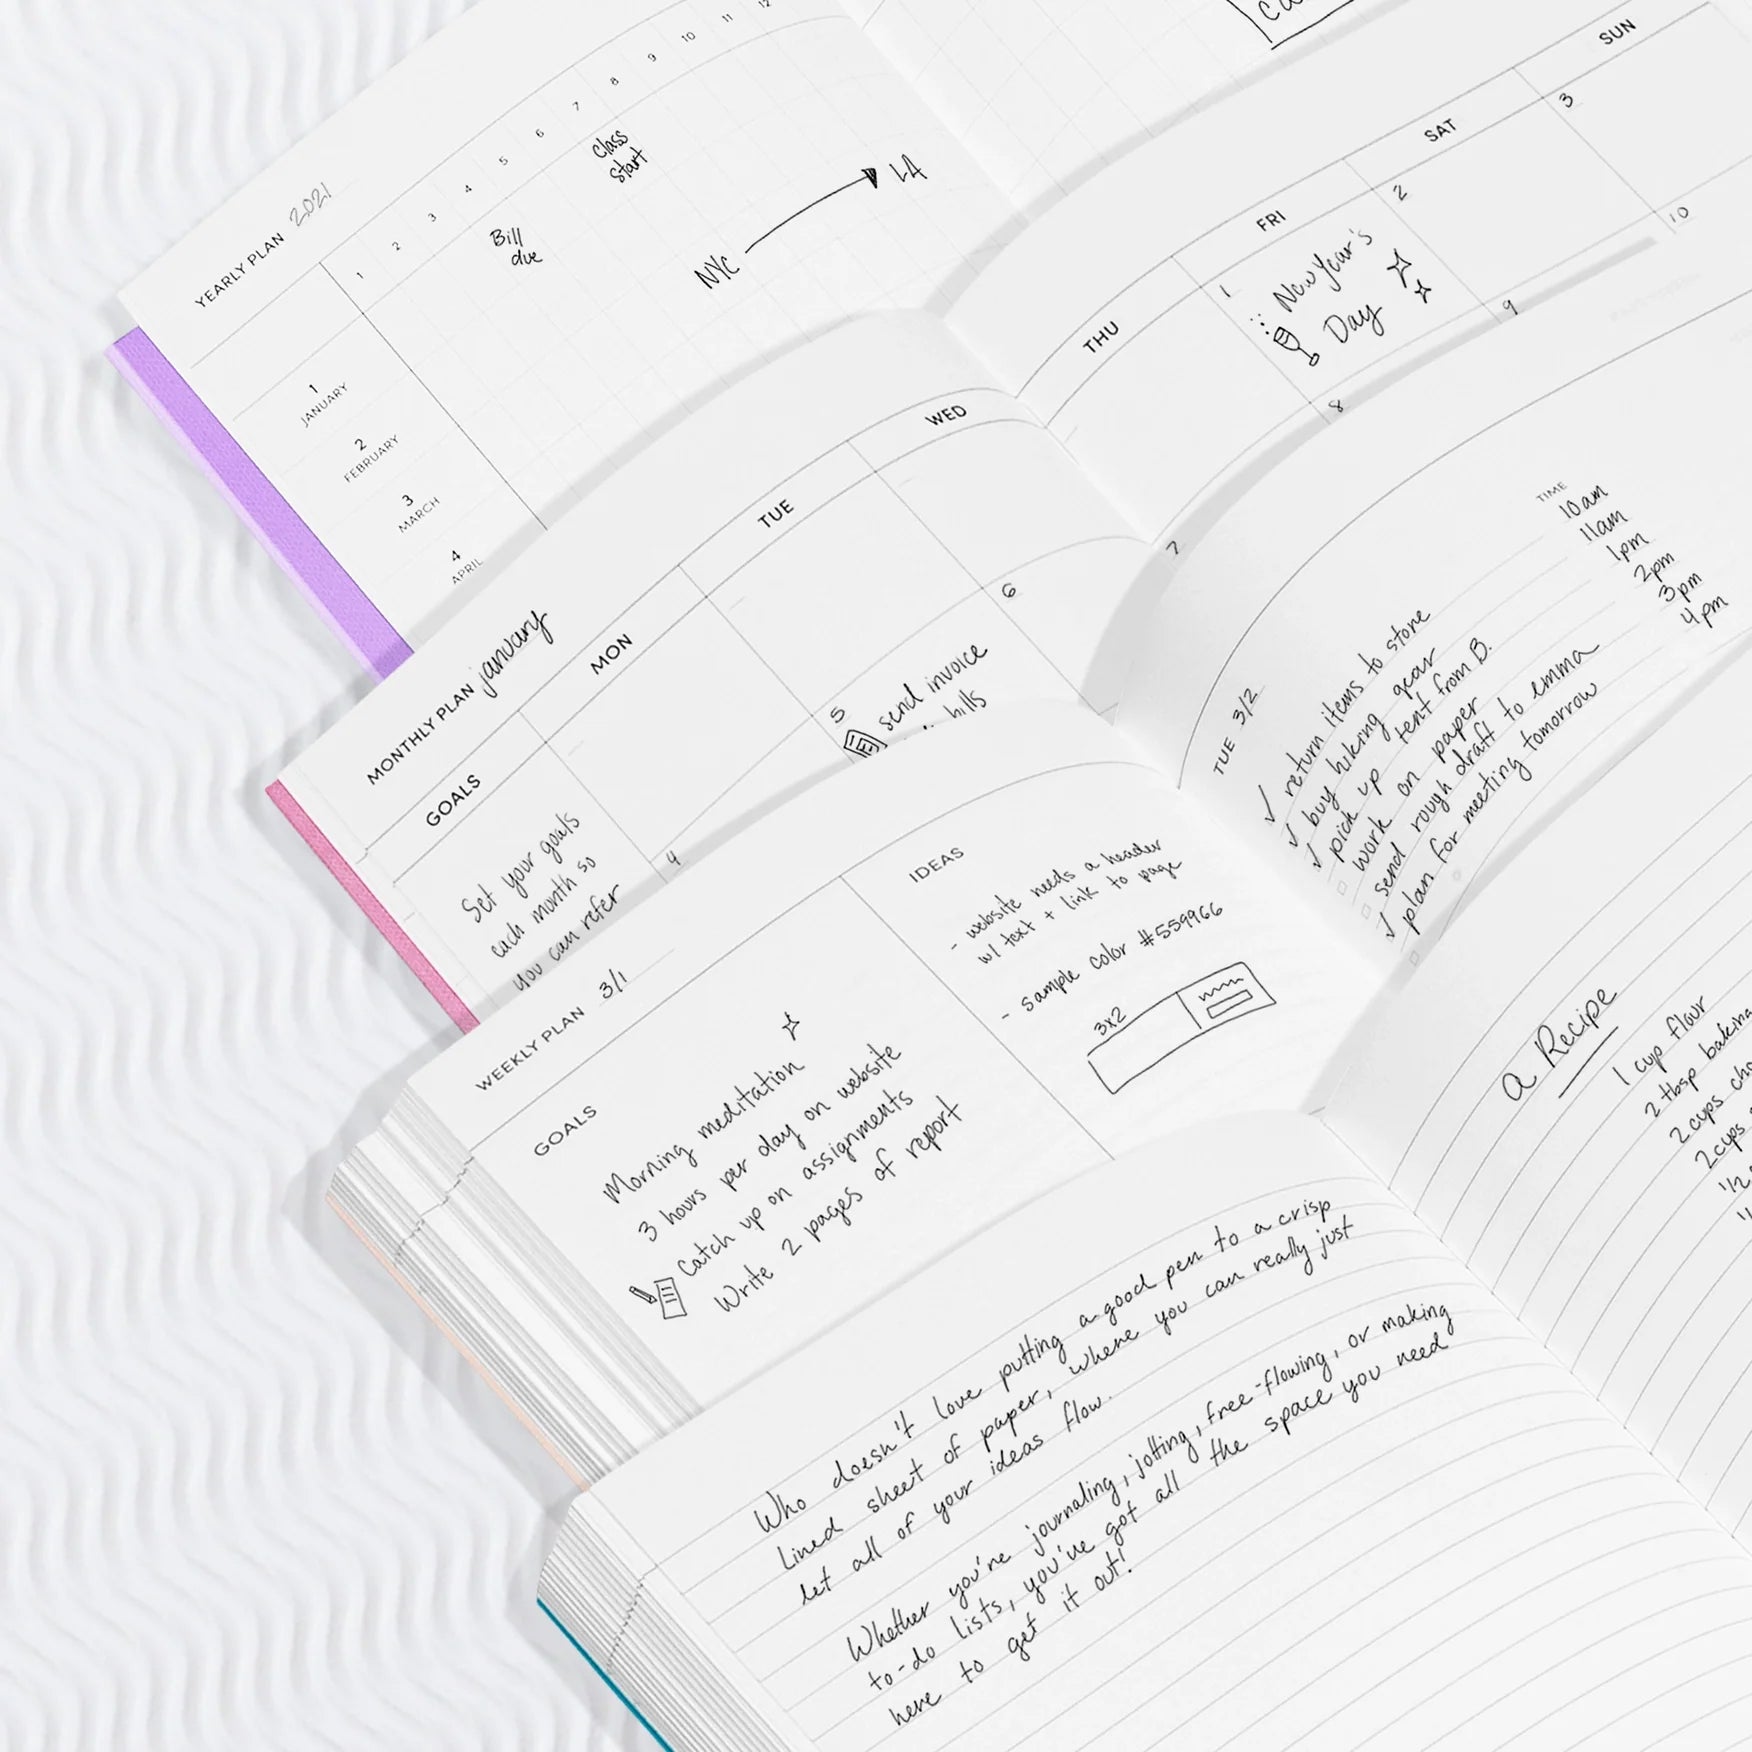 YEARLY PLAN 2021
1 2 3 4 5 6 7 8 9 10 11 12
Class
Start
Bill
due
NYC
LA
1
JANUARY
2
FEBRUARY
3
MARCH
4
APRIL
MONTHLY PLAN january
GOALS MON TUE WED
THU FRI SAT SUN
1 2 3
New Year's
Day
4 5 6 7 8 9 10
send invoice
bills
Set your goals
each month so
you can refer
WEEKLY PLAN 3/1
GOALS
Morning meditation
3 hours per day on website
Catch up on assignments
Write 2 pages of report
IDEAS
- website needs a header
w/ text + link to page
- sample color #559966
3x2
TUE 3/2
TIME
✓ return items to store 10am
✓ buy hiking gear 11am
✓ pick up tent from B. 1pm
work on paper 2pm
send rough draft to emma 3pm
✓ plan for meeting tomorrow 4pm
Who doesn't love putting a good pen to a crisp
lined sheet of paper, where you can really just
let all of your ideas flow.
Whether you're journaling, jotting, free-flowing, or making
to-do lists, you've got all the space you need
here to get it out!
a Recipe
1 cup flour
2 tbsp
2 cups
2 cups
1/2